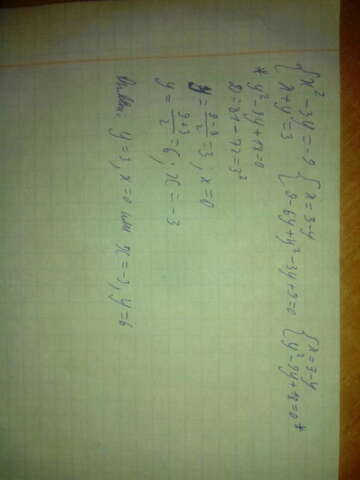 {x² - 3y = -9 {x = 3-y {x = 3-y
{x + y = 3 {9 - 6y + y² - 3y + 9 = 0 {y² - 9y + 18 = 0 *
* y² - 9y + 18 = 0
D = 81 - 72 = 3²
y = (9-3)/2 = 3; x = 0
y = (9+3)/2 = 6; x = -3
Ответ: y = 3, x = 0 или x = -3, y = 6